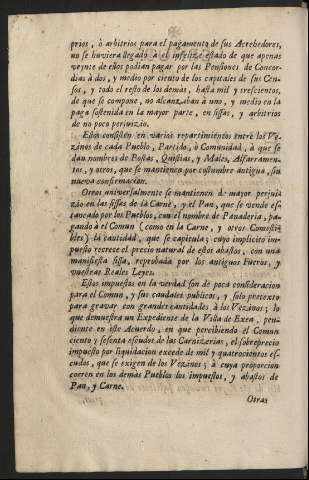 prios, ò arbitrios para el pagamento de sus Acrehedores,
no se huviera llegado à el infelize estado de que apenas
veynte de ellos podian pagar por las Pensiones de Concor-
dias à dos, y medio por ciento de los capitales de sus Cen-
sos, y todo el resto de los demàs, hasta mil y trescientos,
de que se compone, no alcanzaban à uno, y medio en la
paga sostenida en la mayor parte, en sissas, y arbitrios
de no poco perjuizio.
Estos consisten en varios repartimientos entre los Ve-
zinos de cada Pueblo, Partido, ò Comunidad, à que se
dan nombres de Postas, Quistias, y Males, Alfarramen-
tos, y otros, que se mantienen por costumbre antigua, sin
nueva confirmacion.
Otros universalmente se mantienen de mayor perjui-
zio en las sissas de la Carne, y el Pan, que se vende es-
tancado por los Pueblos, con el nombre de Panaderia, pa-
gando à el Comun (como en la Carne, y otros Comesti-
bles) la cantidad, que se capitula; cuyo implicito im-
puesto recrece el precio natural de estos abastos, con una
manifiesta sissa, reprobada por los antiguos Fueros, y
vuestras Reales Leyes.
Estos impuestos en la verdad son de poca consideracion
para el Comun, y sus caudales publicos, y solo pretexto
para gravar con grandes cantidades à los Vezinos; lo
que demuestra un Expediente de la Villa de Exea, pen-
diente en este Acuerdo, en que percibiendo el Comun
ciento y sesenta escudos de las Carnizerias, el sobreprecio
impuesto por liquidacion excede de mil y quatrocientos es-
cudos, que se exigen de los Vezinos; à cuya proporcion
corren en los demàs Pueblos los impuestos, y abastos de
Pan, y Carne.
Otros